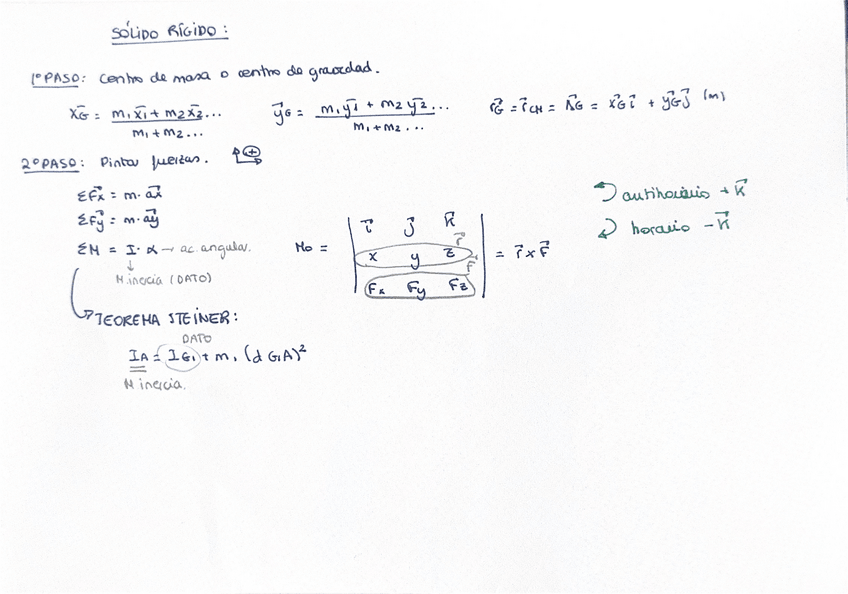 SÓLIDO RÍGIDO:
1º PASO: Centro de masa o centro de gravedad.
x̄G = m₁x̄₁ + m₂x̄₂... / m₁ + m₂... ȳG = m₁ȳ₁ + m₂ȳ₂... / m₁ + m₂... r⃗G = r⃗CM = = x⃗G i⃗ + y⃗G j⃗ (m)
2º PASO: Pintar fuerzas. +
ΣF⃗x = m · a⃗x
ΣF⃗y = m · a⃗y
ΣM = I · α → ac. angular.
M inercia (DATO)
Mo = | i⃗ j⃗ k⃗ |
x y z r⃗
Fx Fy Fz F⃗
= r⃗ x F⃗
antihorario + k⃗
horario - k⃗
TEOREMA STEINER:
DATO
IA = IG₁ + m₁ (d G₁A)²
M inercia.